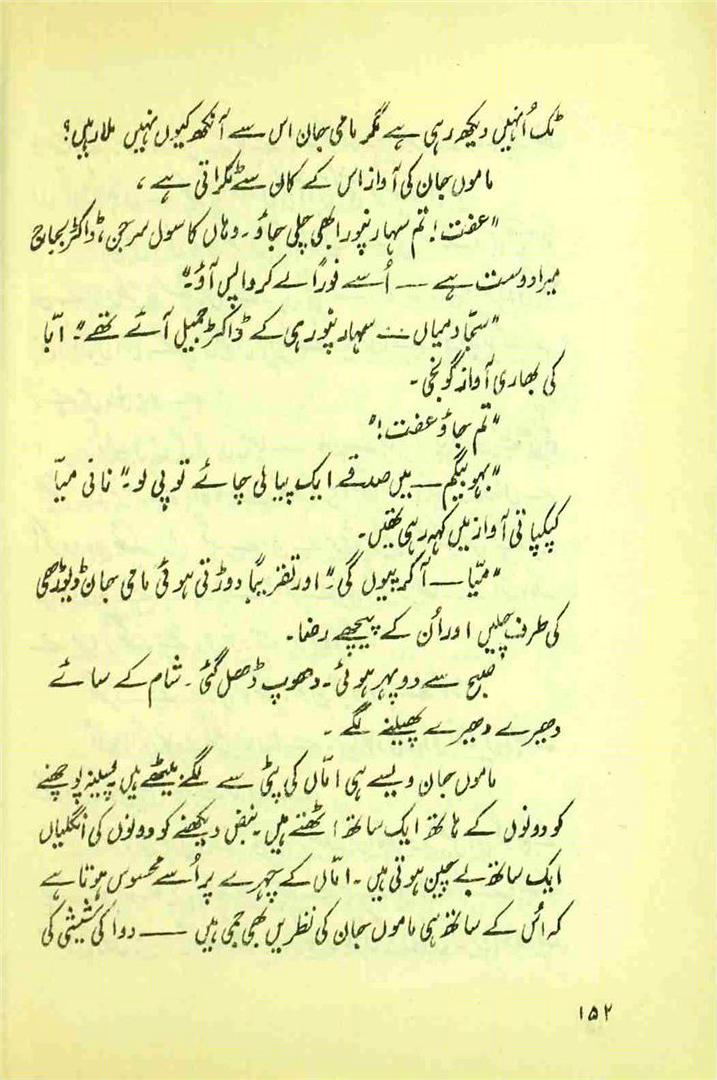 ٹک اُنہیں دیکھ رہی ہے مگر مامی جان اس سے آنکھ کیوں نہیں ملا رہیں؟
ماموں جان کی آواز اس کے کان سے ٹکراتی ہے ،
"عفت! تم سہارنپور ابھی چلی جاؤ۔ وہاں کا سول سرجن، ڈاکٹر بجاج
میرا دوست ہے — اُسے فوراً لے کر واپس آؤ۔"
"سجاد میاں — سہارنپور ہی کے ڈاکٹر جمیل آئے تھے"۔ ابّا
کی بھاری آواز گونجی۔
"تم جاؤ عفت!"
"بہو بیگم — میں صدقے ایک پیالی چائے تو پی لو۔" نانی میّا
کپکپاتی آواز میں کہہ رہی تھیں۔
"میّا — آ کر پیوں گی۔" اور تقریباً دوڑتی ہوئی مامی جان ڈیوڑھی
کی طرف چلیں اور اُن کے پیچھے رضا۔
صبح سے دوپہر ہوئی۔ دھوپ ڈھل گئی۔ شام کے سائے
دھیرے دھیرے پھیلنے لگے۔
ماموں جان ویسے ہی امّاں کی پٹی سے لگے بیٹھے ہیں پسینہ پوچھنے
کو دونوں کے ہاتھ ایک ساتھ اٹھتے ہیں۔ نبض دیکھنے کو دونوں کی انگلیاں
ایک ساتھ بے چین ہوتی ہیں۔ امّاں کے چہرے پر اُسے محسوس ہوتا ہے
کہ اُس کے ساتھ ہی ماموں جان کی نظریں بھی جمی ہیں — دوا کی شیشی کی
۱۵۲